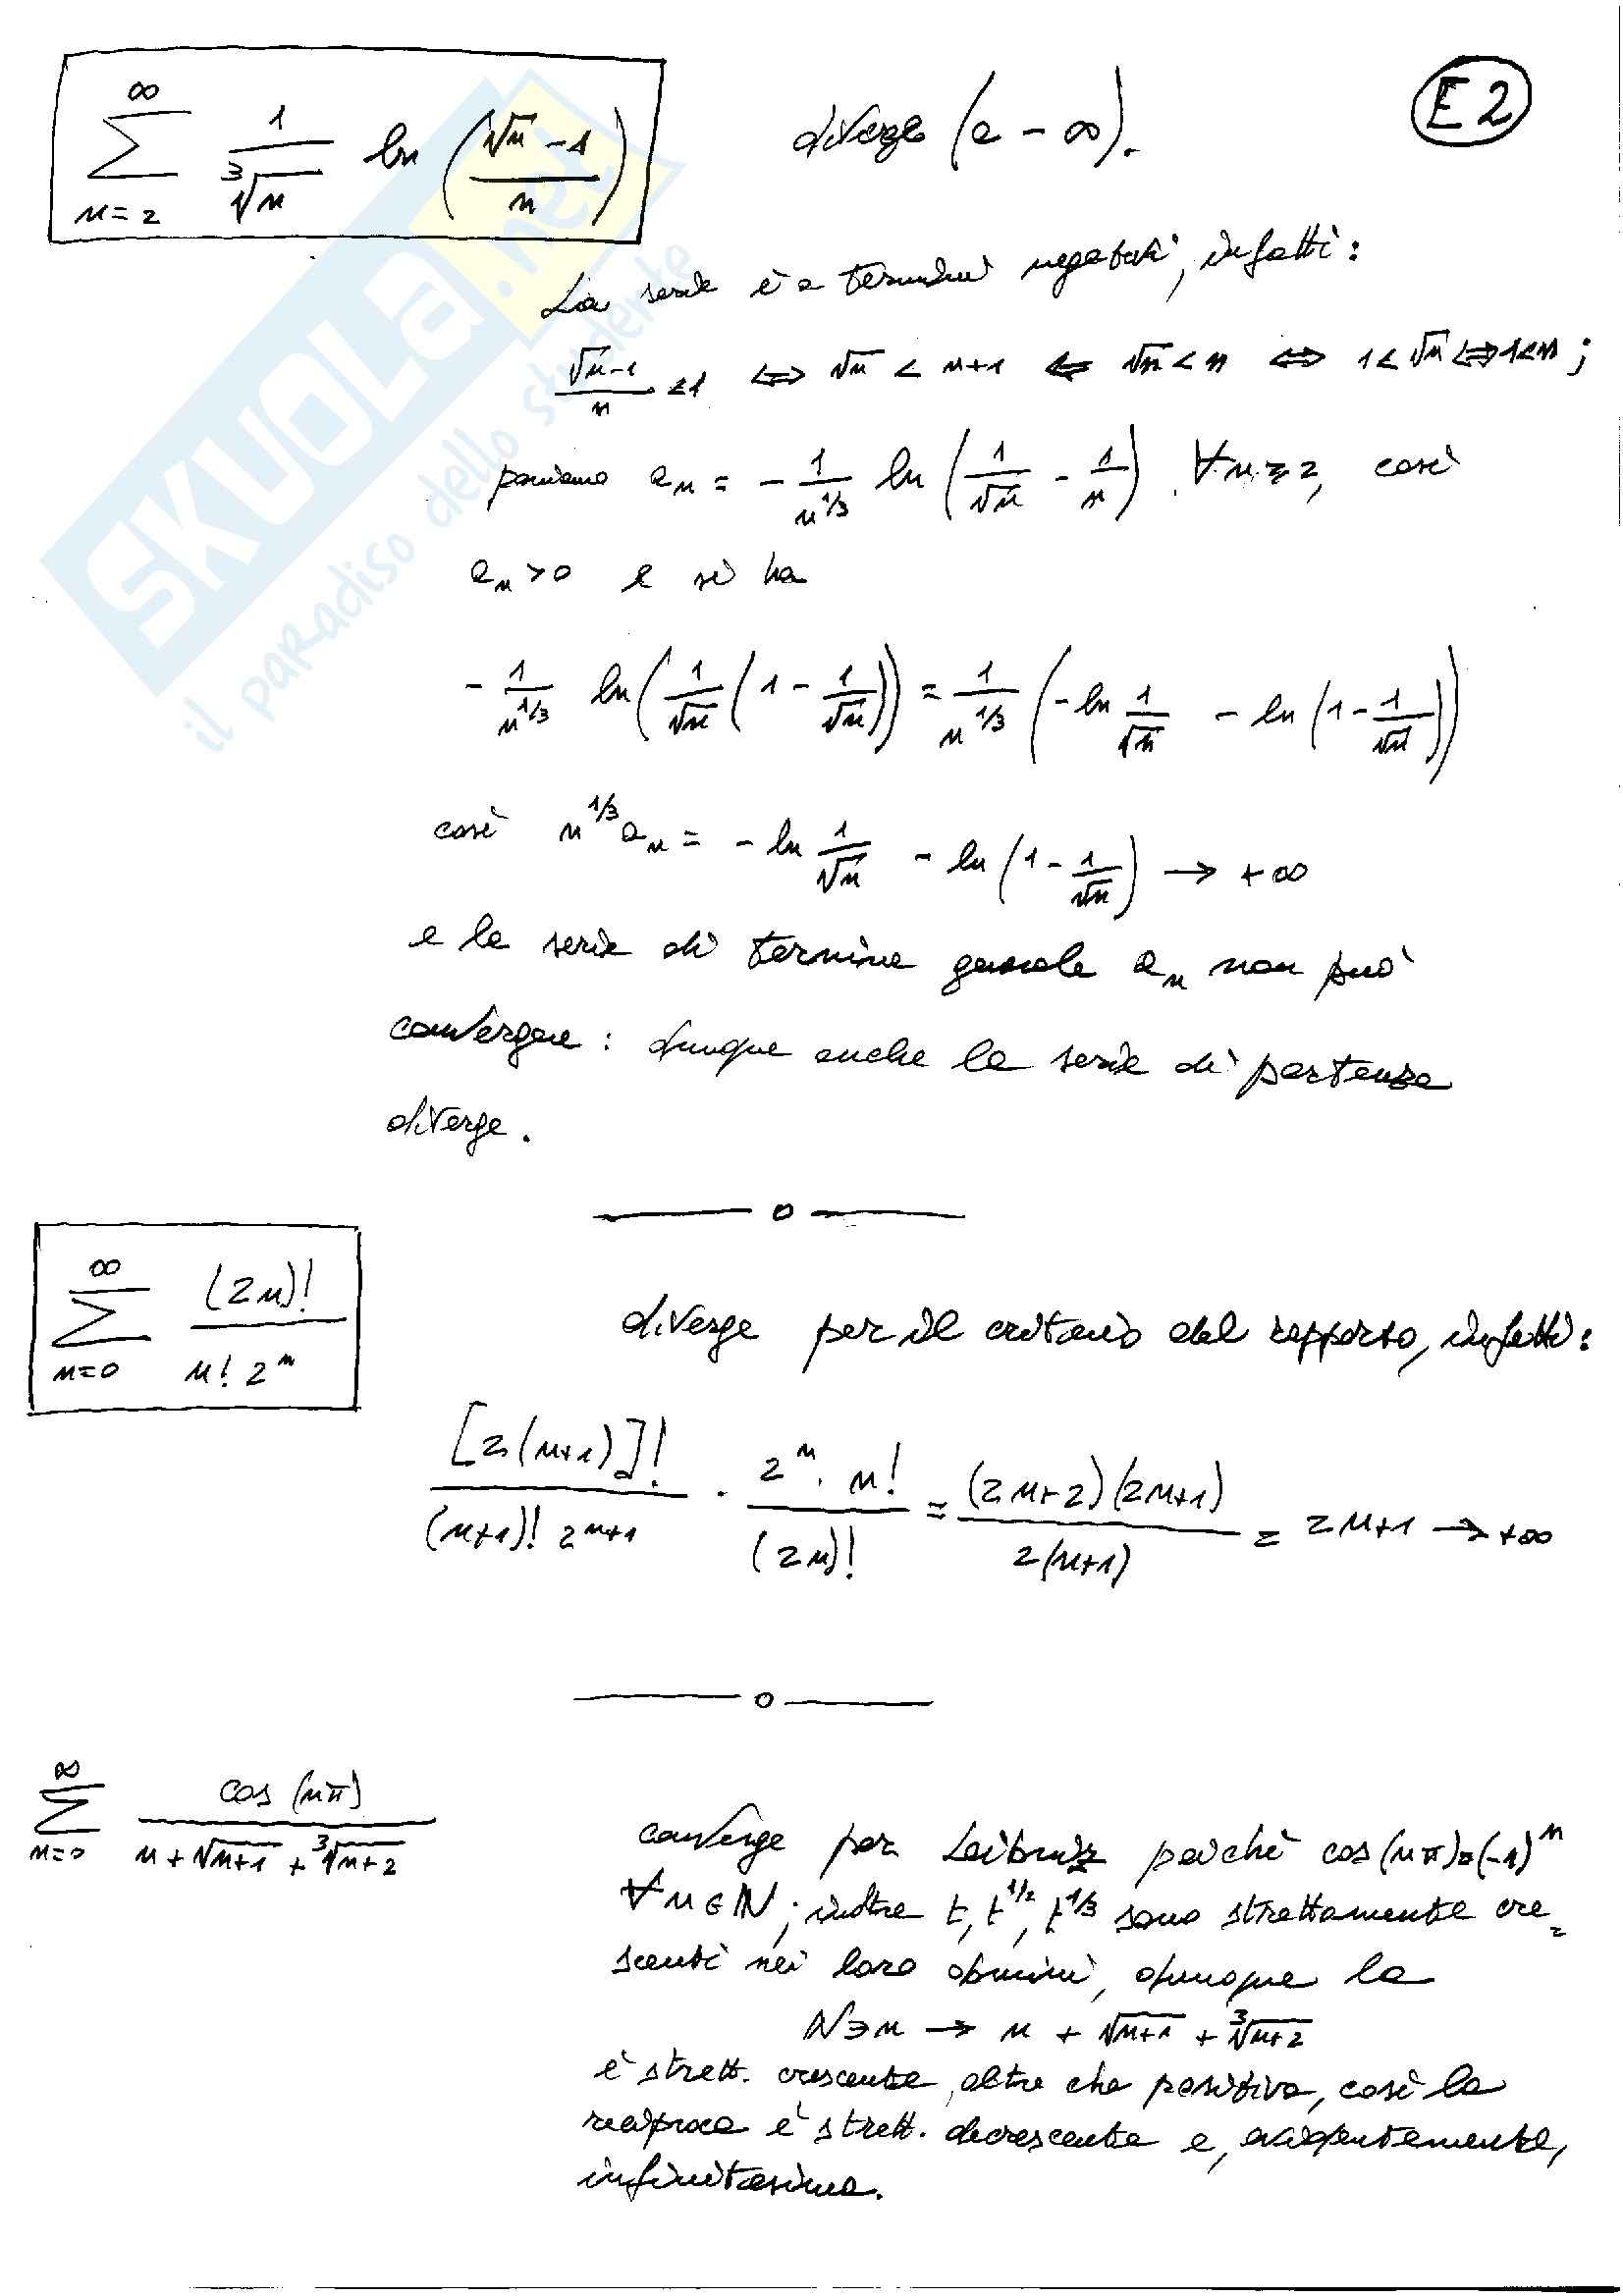 E2
∑_{n=2}^{∞} 1/∛n ln((√n - 1)/n) diverge (a - ∞).
La serie è a termini negativi, infatti:
(√n-1)/n < 1 ⇔ √n < n+1 ⇐ √n < n ⇔ 1 < √n ⇔ 1 < n ;
poniamo a_n = - 1/n^{1/3} ln(1/√n - 1/n) ∀n ≥ 2, così
a_n > 0 e si ha
- 1/n^{1/3} ln(1/√n (1 - 1/√n)) = 1/n^{1/3} (- ln 1/√n - ln(1 - 1/√n))
così n^{1/3} a_n = - ln 1/√n - ln(1 - 1/√n) → +∞
e la serie di termine generale a_n non può
convergere : dunque anche la serie di partenza
diverge.
∑_{n=0}^{∞} (2n)!/(n! 2^n) diverge per il criterio del rapporto, infatti:
[2(n+1)]!/((n+1)! 2^{n+1}) · (2^n · n!)/(2n)! = (2n+2)(2n+1)/(2(n+1)) = 2n+1 → +∞
∑_{n=0}^{∞} cos(nπ)/(n + √(n+1) + ∛(n+2)) converge per Leibniz poiché cos(nπ)=(-1)^n
∀n∈ℕ ; inoltre t, t^{1/2}, t^{1/3} sono strettamente cre=
scenti nei loro domini, dunque la
ℕ∋n → n + √(n+1) + ∛(n+2)
è strett. crescente, oltre che positiva, così la
reciproca è strett. decrescente e, evidentemente,
infinitesima.
SKUOLA.net
il paradiso dello studente